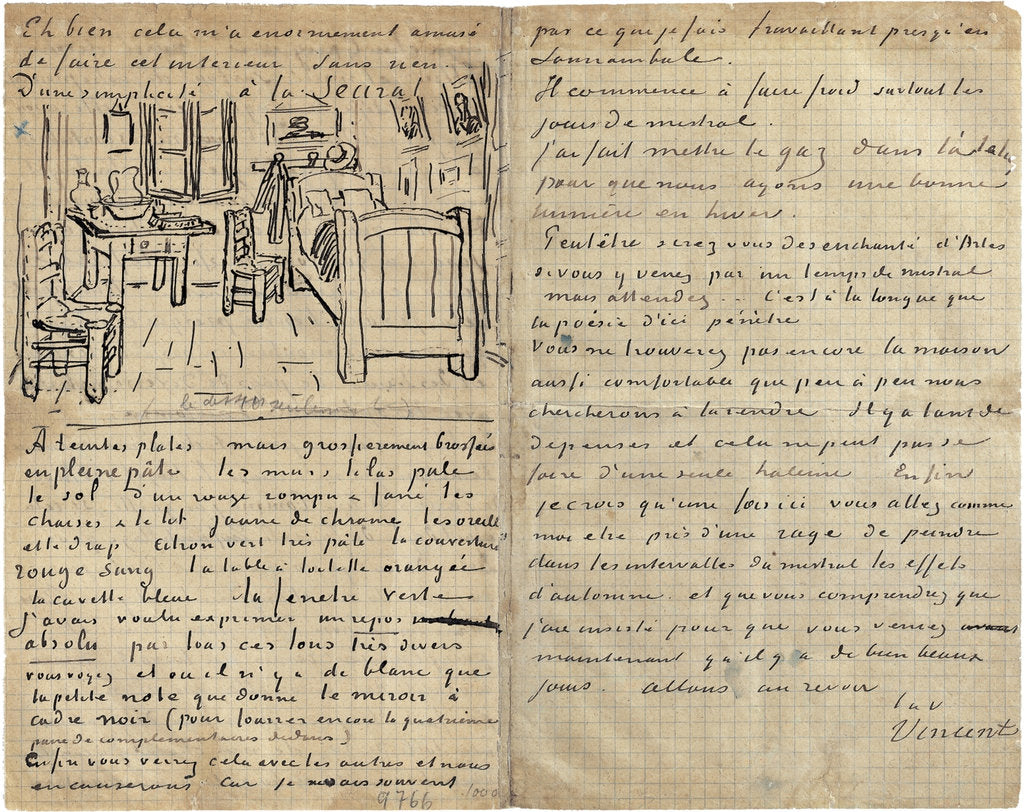 Eh bien cela m'a enormement amusé
de faire cet interieur sans rien.
D'une simplicité à la Seurat
A teintes plates mais grossierement brossées
en pleine pâte les murs lilas pale
le sol d'un rouge rompu & fané les
chaises & le lit jaune de chrome les oreillers
et le drap citron vert très pâle la couverture
rouge sang la table à toilette orangée
la cuvette bleue la fenetre verte
J'avais voulu exprimer un repos
absolu par tous ces tons très divers
vous voyez et où il n'y a de blanc que
la petite note que donne le miroir à
cadre noir (pour fourrer encore la quatrième
paire de complementaires dedans)
Enfin vous verrez cela avec les autres et nous
en causerons car je ne sais souvent
9766
1000
pas ce que je fais travaillant presqu'en
somnambule.
Il commence à faire froid surtout les
jours de mistral.
J'ai fait mettre le gaz dans l'atelier
pour que nous ayons une bonne
lumière en hiver.
Peutêtre serez vous desenchanté d'Arles
si vous y venez par un temps de mistral
mais attendez... C'est à la longue que
la poésie d'ici pénètre
Vous ne trouverez pas encore la maison
aussi comfortable que peu à peu nous
chercherons à la rendre Il y a tant de
depenses et cela ne peut pas se
faire d'une seule haleine Enfin
je crois qu'une fois ici vous allez comme
moi etre pris d'une rage de peindre
dans les intervalles du mistral les effets
d'automne. et que vous comprendrez que
j'aie insisté pour que vous veniez
maintenant qu'il y a de bien beaux
jours. allons au revoir
t. à v
Vincent